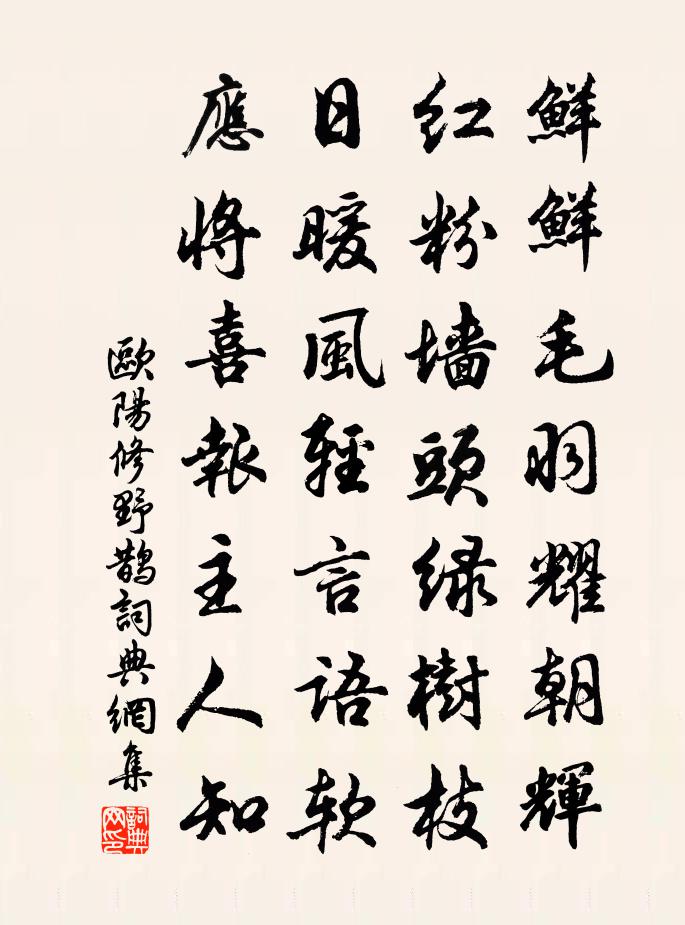 鮮鮮毛羽耀朝輝
紅粉墻頭绿樹枝
日暖風輕言語软
應將喜報主人知
歐陽修野鵲詞典網集
詞典网印